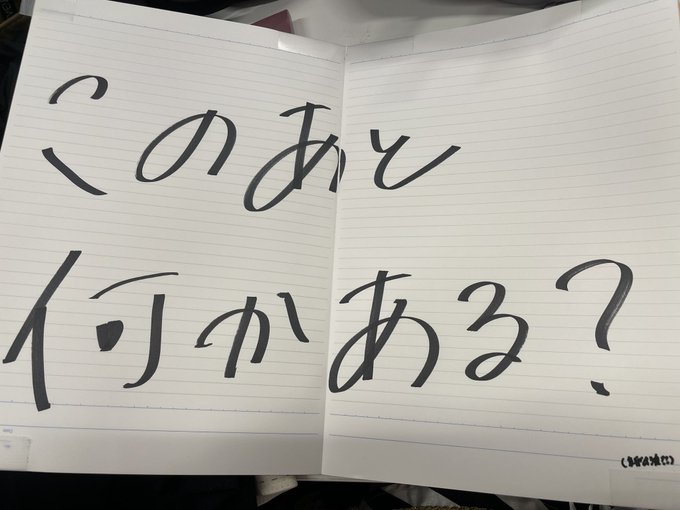 このあと
何かある?